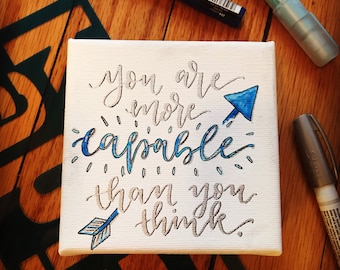 you are
more
capable
than you
think.